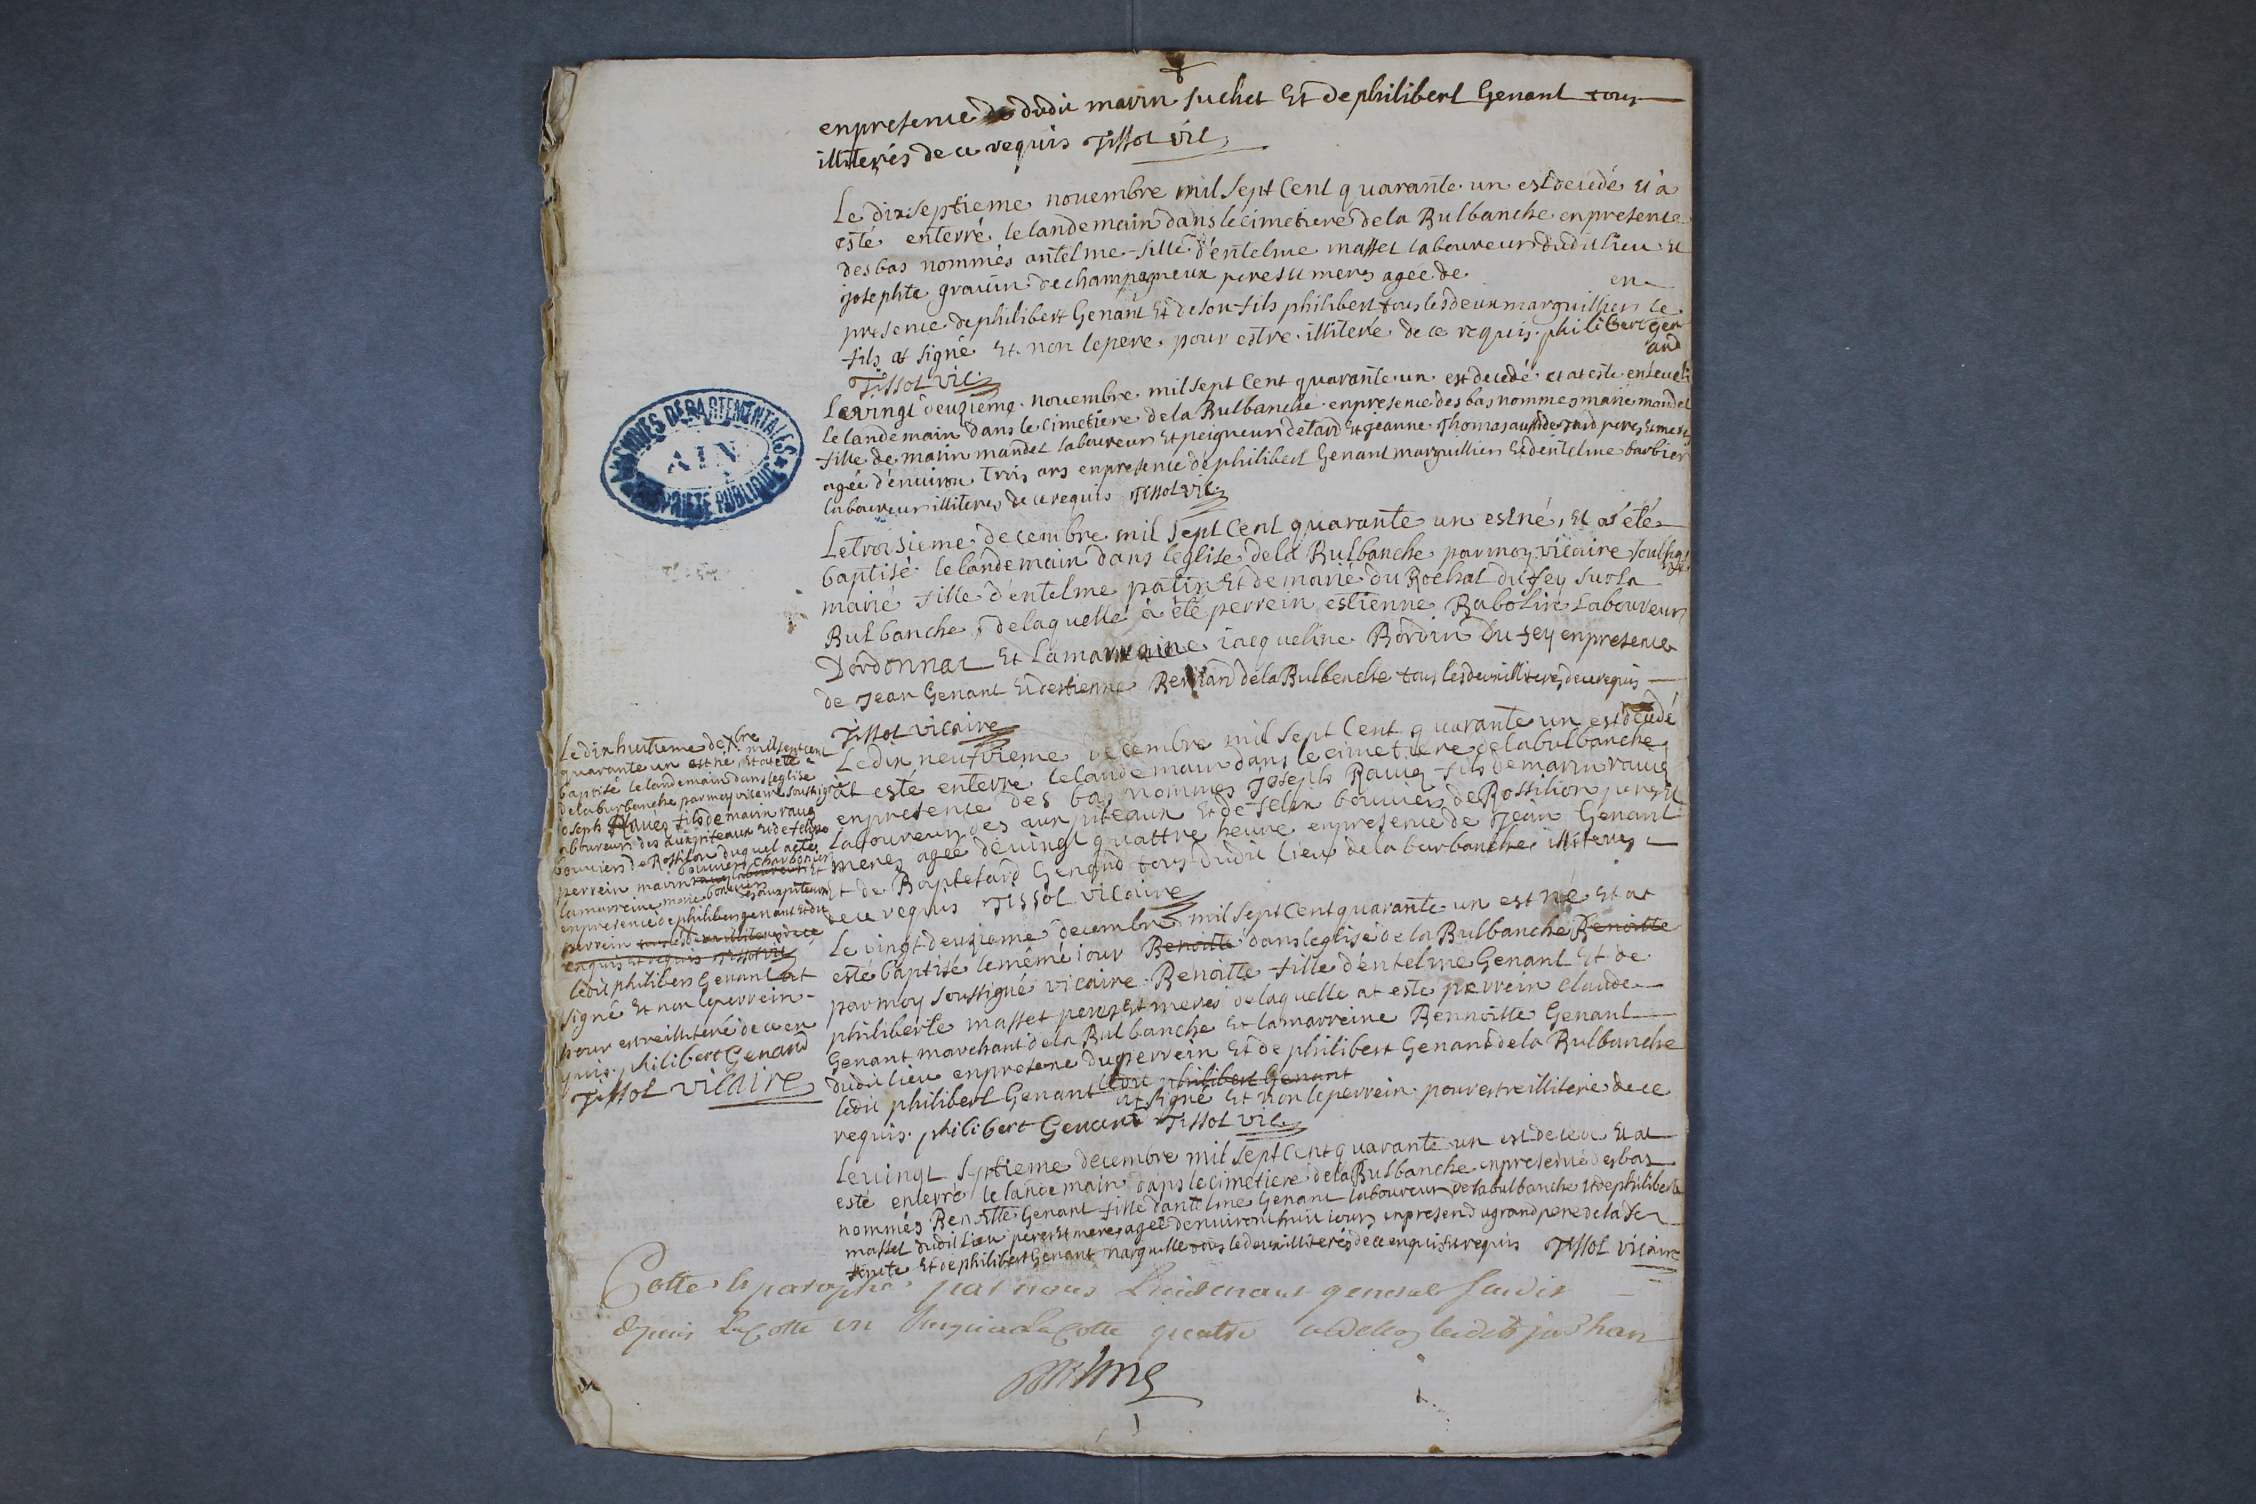 en presence de dudit marin suchet Et de philibert Genant tous
illiterés de ce requis Tissot vic
Le dixseptieme novembre mil sept Cent quarante un est decedé et a
esté enterré le landemain dans le cimetiere de la Bulbanche en presence
des bas nommés antelme fille d'entelme masset laboureur dudit lieu et
josephte gravin de champagneux peres et meres agée de en
presence de philibert Genant Et de son fils philibert tous les deux marguilliers le
fils at signé Et non le pere pour estre illiteré de ce requis philibert Gen
and
Tissot vic
Le vingt deuzieme novembre mil sept Cent quarante un est decedé et at esté enseveli
le landemain dans le cimetiere de la Bulbanche en presence des bas nommes marie mandet
fille de marin mandet laboureur Et peigneur de tard Et jeanne Thomas aussi de tard peres et meres
agée d'environ trois ans en presence de philibert Genant marguillier Et d'entelme barbier
laboureur illiteres de ce requis Tissot vic
Le troisieme decembre mil sept Cent quarante un est né, Et at été
baptisé le landemain dans leglise de la Bulbanche par moy vicaire soussigné
marie fille d'entelme patin Et de marie du Rochat du fey sur la
Bulbanche, de laquelle à été perrein estienne Rabolin Laboureur
Dordonnat Et la marreine jacqueline Bordin du fey en presence
de Jean Genant Et destienne de la Bulbenche tous les deux illiteres de ce requis
Tissot vicaire
Le dix neufvieme decembre mil sept Cent quarante un est decedé
at esté enterré le landemain dans le cimetiere de la bulbanche
en presence des bas nommes Joseph Ravez fils de marin ravez
laboureur des aupiteaux Et de felix bouvier de Rossilion peres et
meres agée de vingt quattre heure en presence de Jean Genant
Et de Baptesard Genand tous dudit lieu de la burbanche illiteres
de ce requis Tissot vicaire
Le dixhuitieme de Xbre
mil sept cent
quarante un est né, Et at eté
baptisé le landemain dans leglise
de la burbanche par moy vicaire soussigné
joseph Ravez fils de marin ravez
laboureur des aupiteaux Et de felix
bouvier de Rossilon duquel a eté
bouvier charbonier
perrein marin ravez laboureur Et
la marreine marie bouvier des aupiteaux
en presence de philibert genant Et du
perrein tous les deux illiteres de ce
enquis Et requis Tissot vic
ledit philibert Genant at
signé Et non le perrein
pour estre illiteré de ce en
quis philibert Genand
Tissot vicaire
Le vingt deuzieme decembre mil sept Cent quarante un est né Et at
esté baptisé le même jour Benoitte dans leglise de la Bulbanche Benoitte
par moy soussigné vicaire Benoitte fille d'entelme Genant Et de
philiberte masset peres Et meres de laquelle at esté perrein claude
Genant marchant de la Bulbanche Et la marreine Bennoitte Genant
dudit lieu en presence du perrein Et de philibert Genant de la Bulbanche
ledit philibert Genant
ledit philibert Genant at signé Et non le perrein pour estre illiteré de ce
requis philibert Genant Tissot vic
Le vingt septieme decembre mil sept Cent quarante un est decedé Et at
esté enterré le landemain dans le cimetiere de la Bulbanche en presence des bas
nommés Benoitte Genant fille dantelme Genant laboureur de la bulbanche Et de philiberte
masset dudit lieu peres Et meres agée denviron huit jours en presen du grand pere de la
Et de philibert Genant les deux illiterés de ce enquis Et requis Tissot vicaire
Cotté Et paraphé par nous Lieutenant general
depuis La Cotte un Jusqu'a La Cotte quatre
ARCHIVES DÉPARTEMENTALES
AIN
PROPRIÉTÉ PUBLIQUE